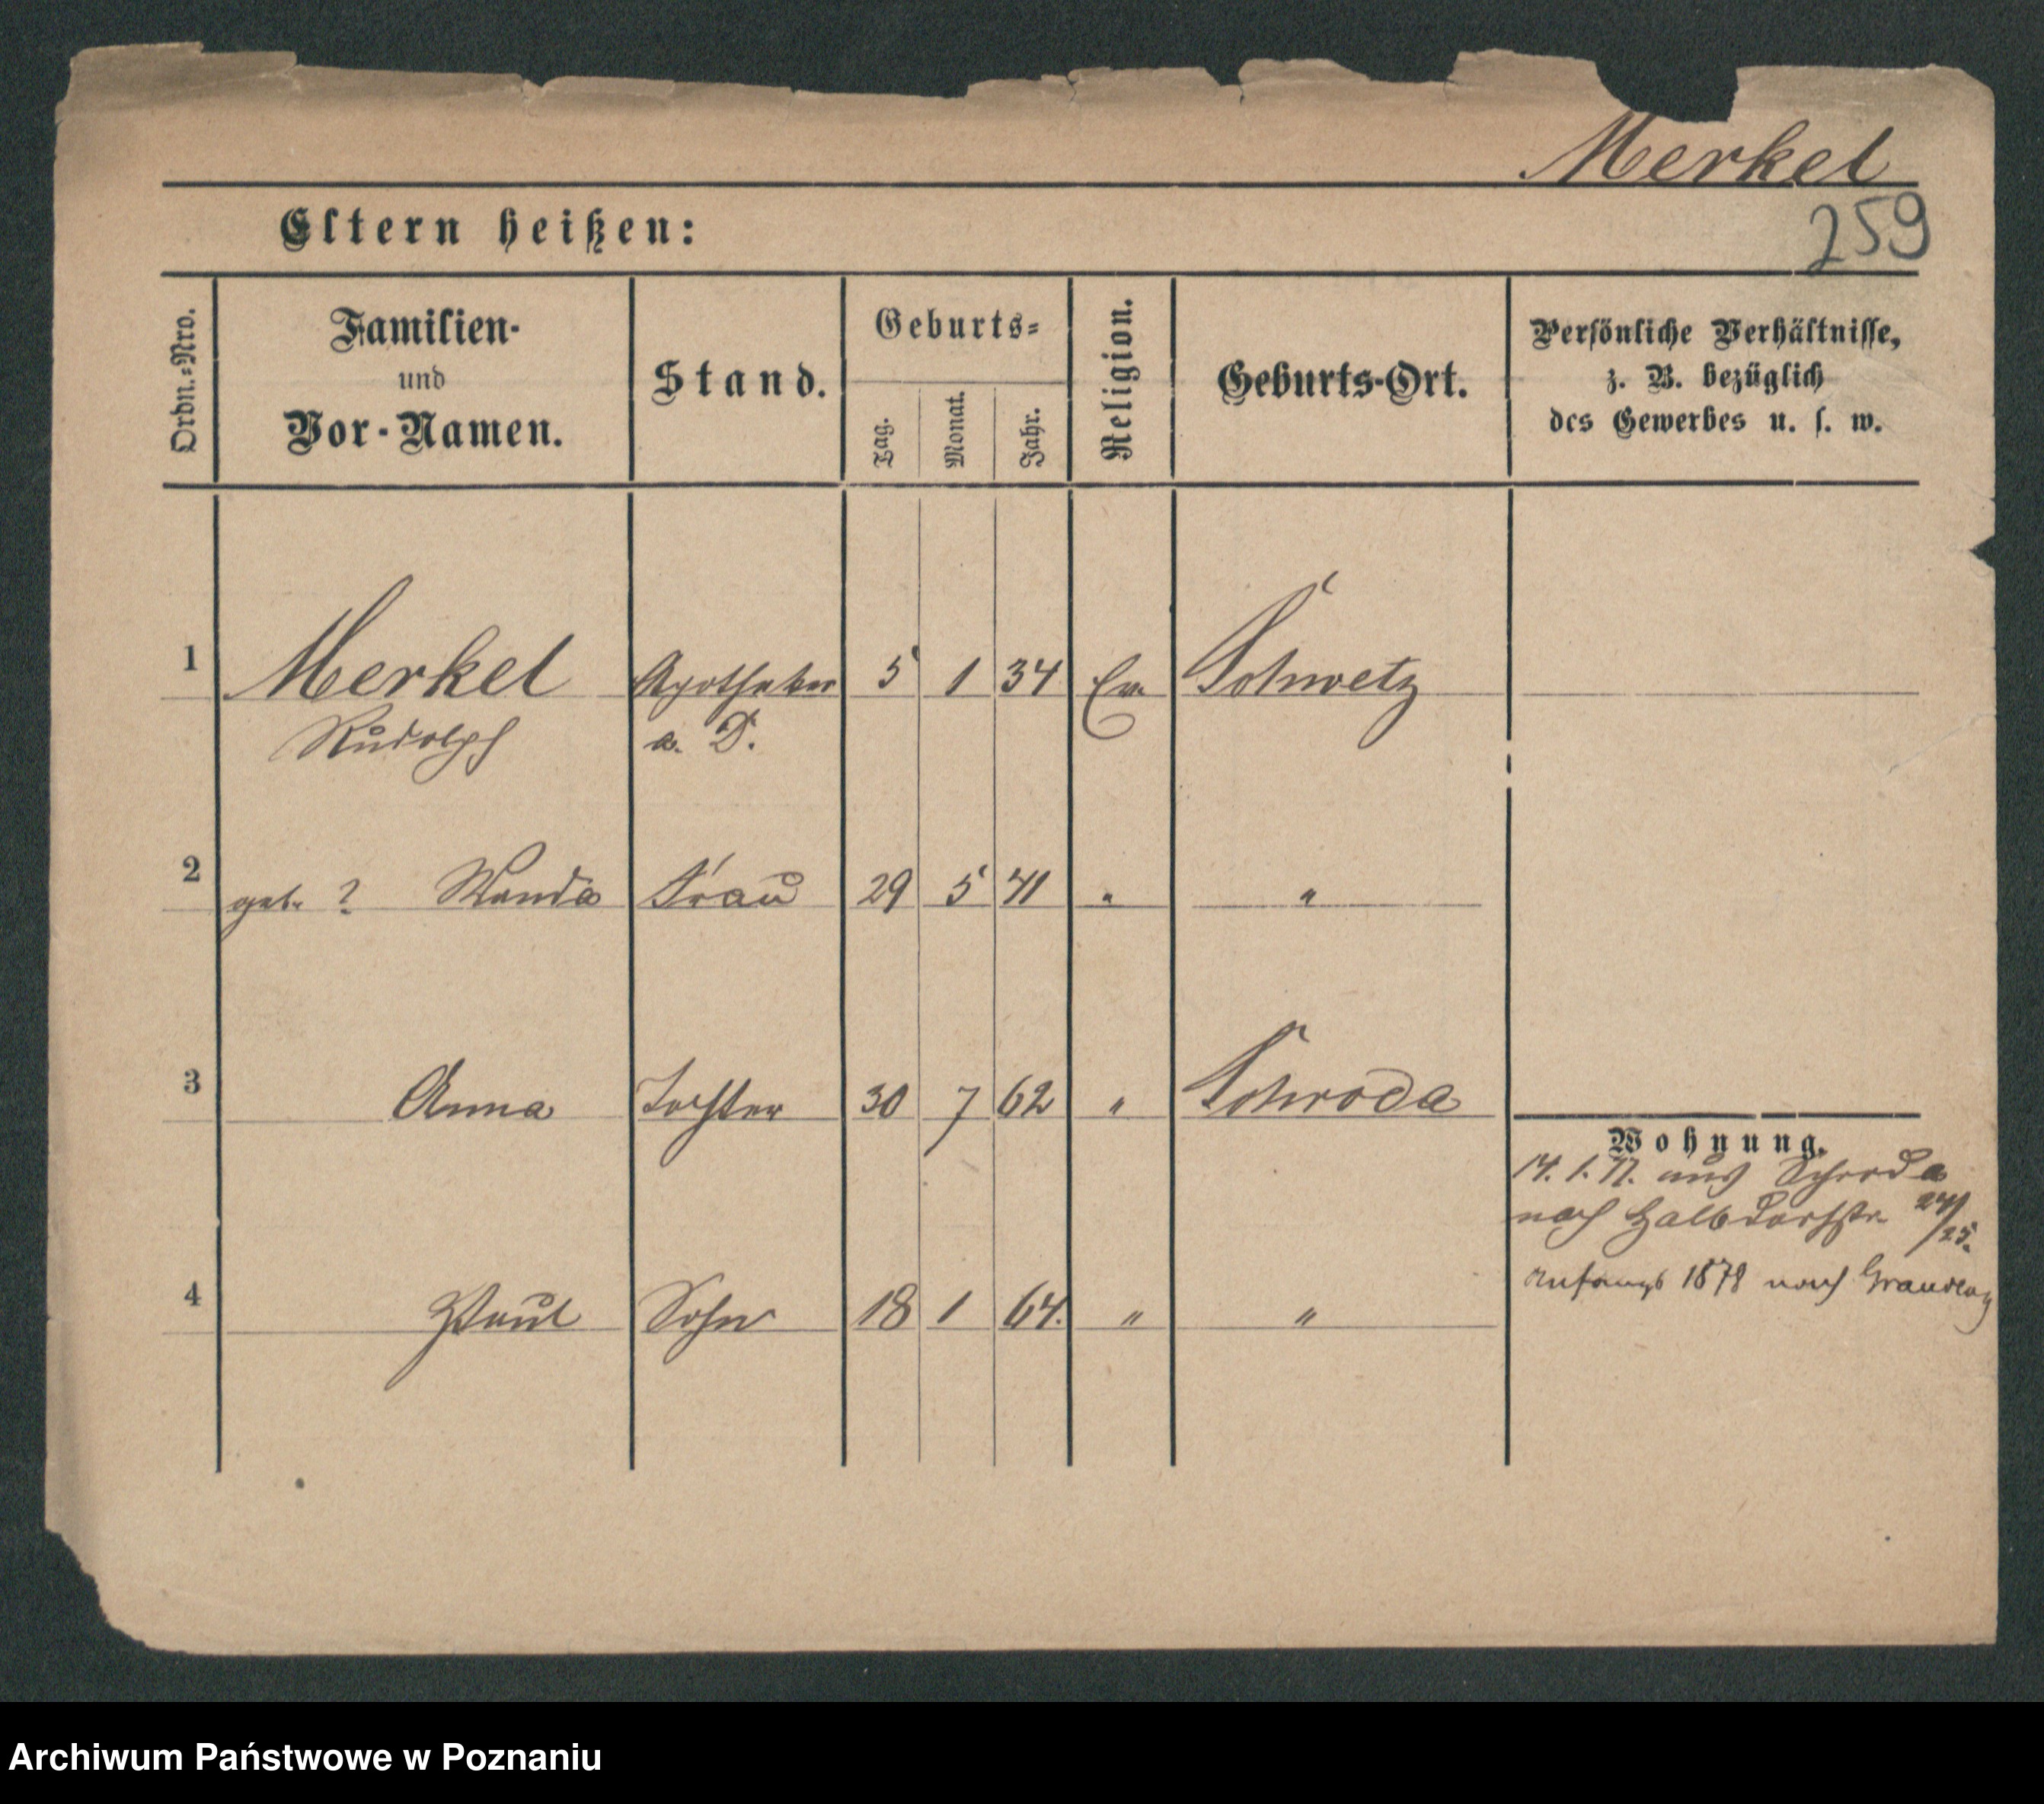 Merkel
259
Eltern heißen:
Ordn.=Nro.
Familien-
und
Vor-Namen.
Stand.
Geburts=
Tag.
Monat.
Jahr.
Religion.
Geburts-Ort.
Persönliche Verhältnisse,
z. B. bezüglich
des Gewerbes u. s. w.
1 Merkel Apotheker 5 1 34 Ev. Schwetz
Rudolph a. D.
2 geb. ? Wanda Frau 29 5 41 " "
3 Anna Tochter 30 7 62 " Schroda
Wohnung.
14. 1. 77. aus Schroda
nach Halbdorfstr. 24/25.
Anfangs 1878 nach Graudenz
4 Paul Sohn 18 1 64. " "
Archiwum Państwowe w Poznaniu